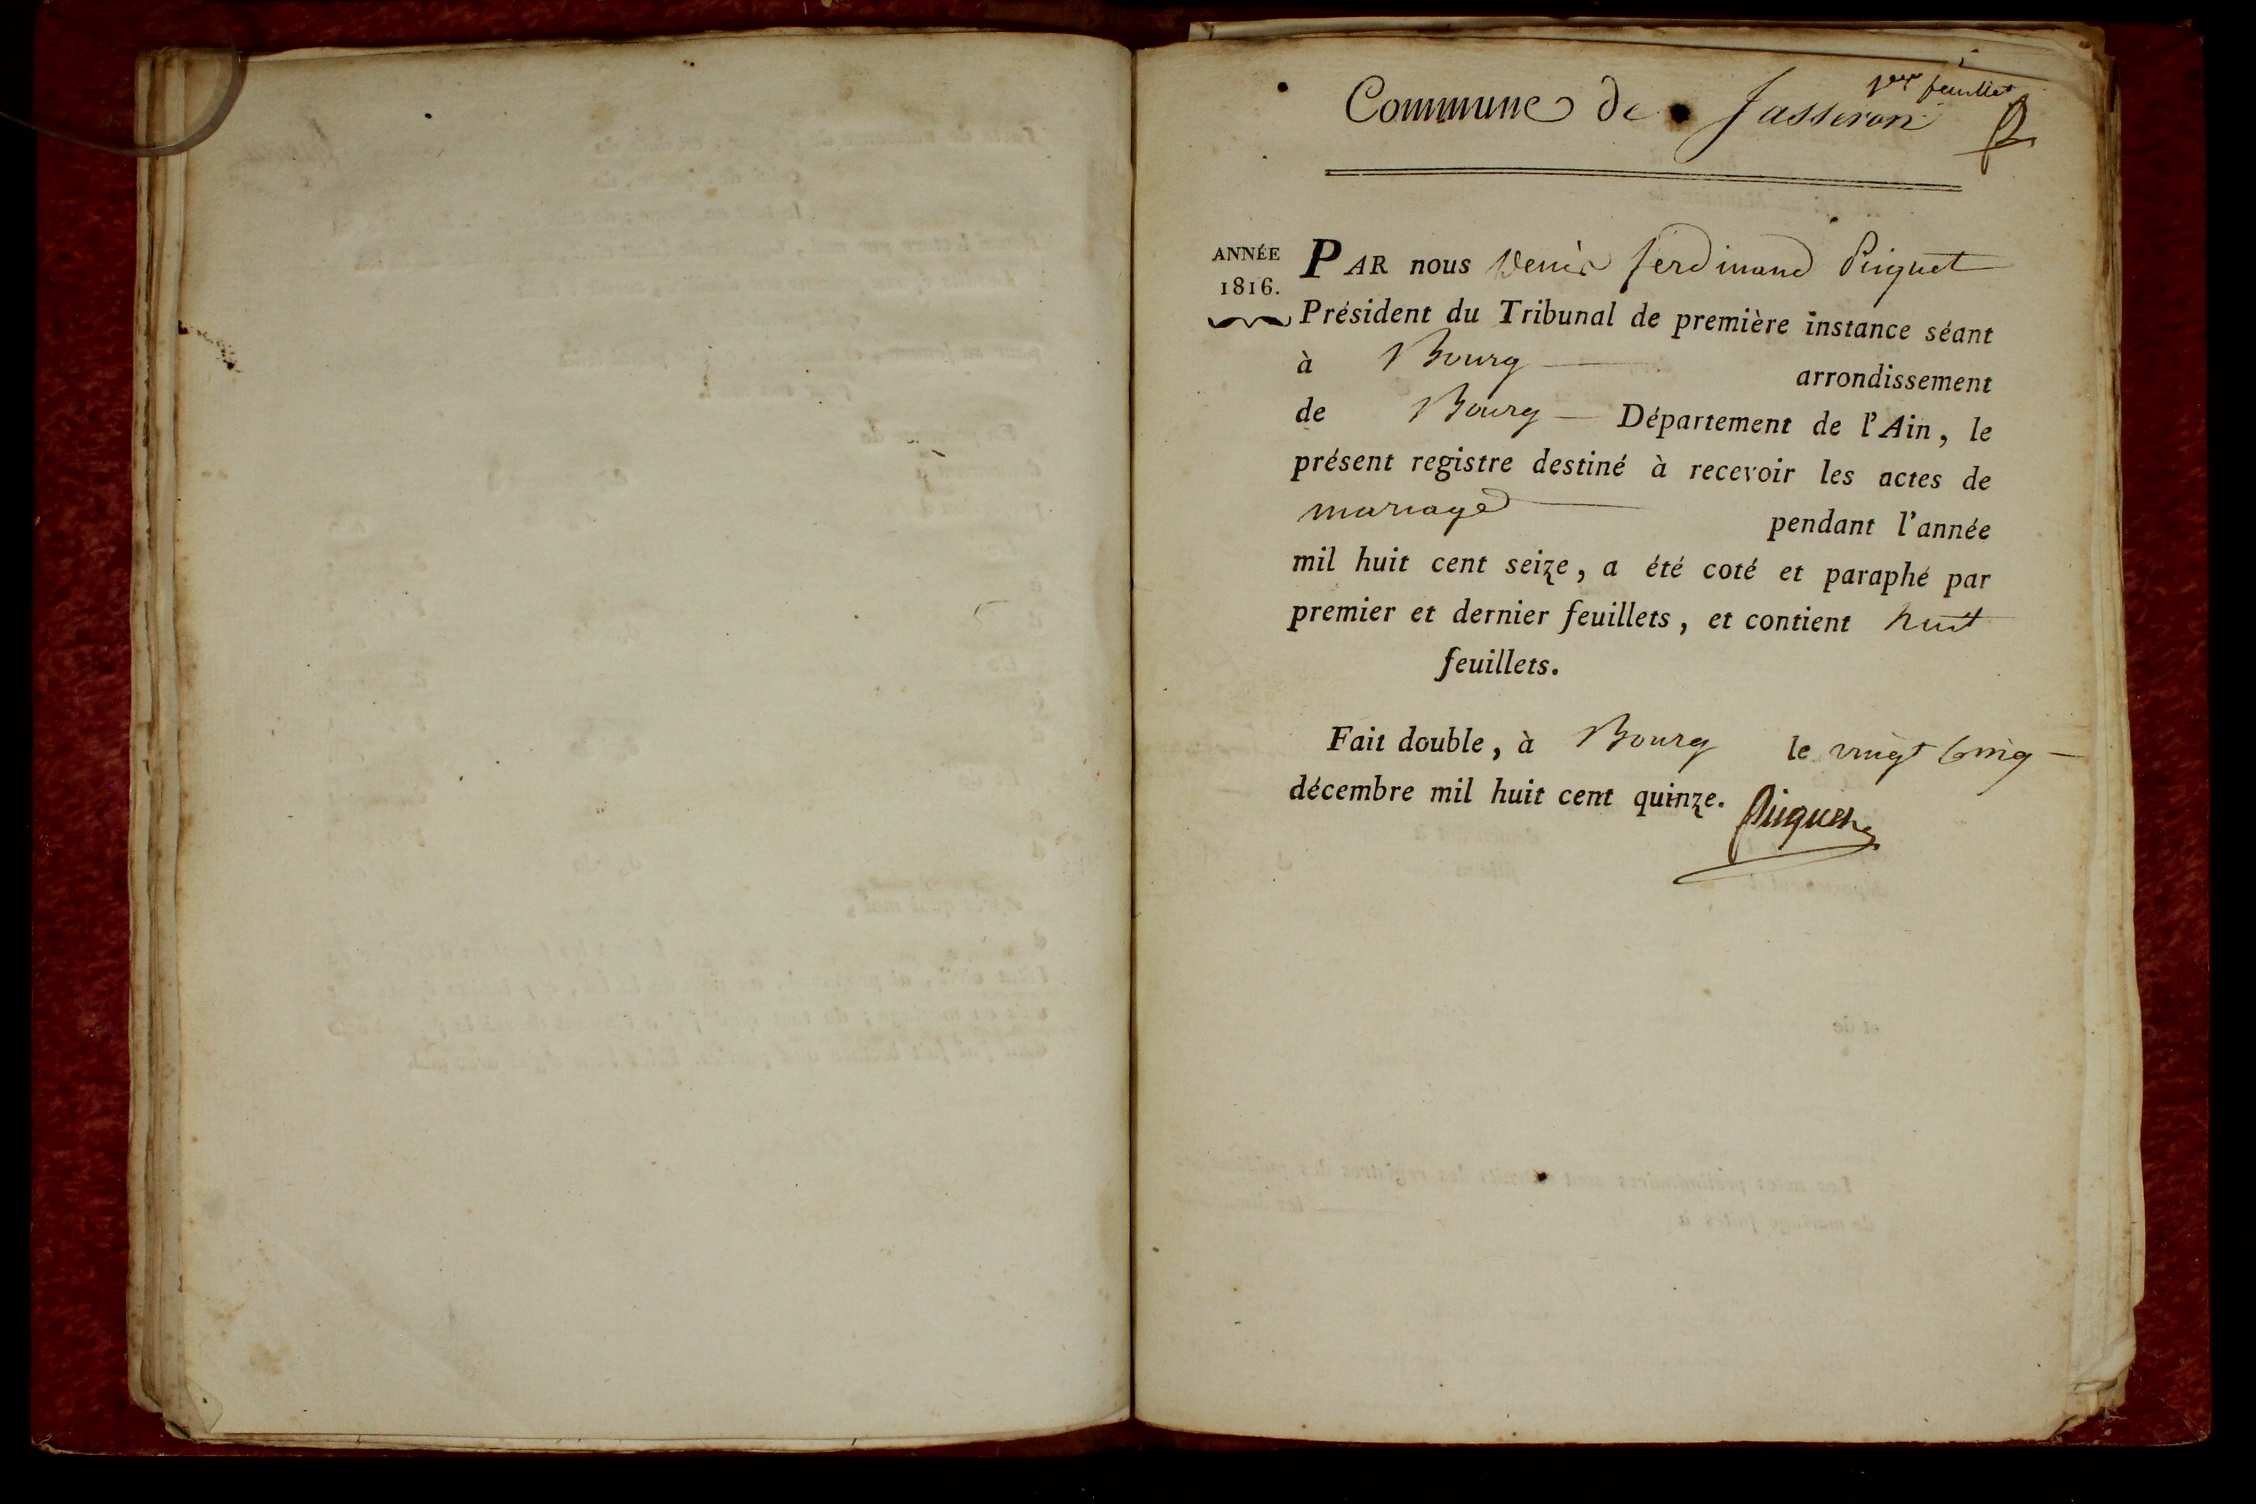 1er feuillet
Commune de Jasseron
ANNÉE
1816.
PAR nous Denis ferdinand Piquet
Président du Tribunal de première instance séant
à Bourg arrondissement
de Bourg Département de l'Ain, le
présent registre destiné à recevoir les actes de
mariage pendant l'année
mil huit cent seize, a été coté et paraphé par
premier et dernier feuillets, et contient huit
feuillets.
Fait double, à Bourg le vingt cinq
décembre mil huit cent quinze.